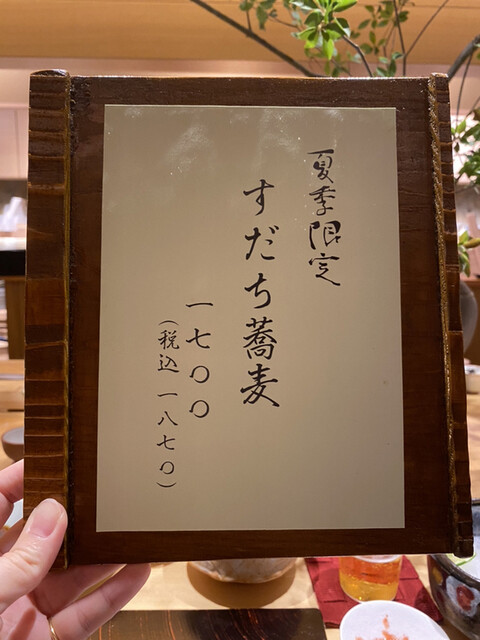 夏季限定
すだち蕎麦
一七〇〇
（税込 一八七〇）